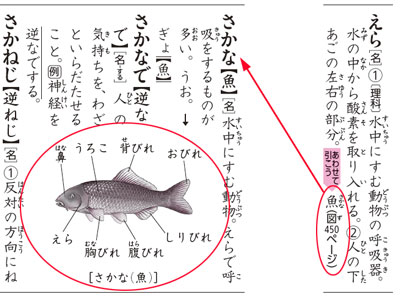 えら[名]①〔理科〕水中にすむ動物の呼吸器。
水の中から酸素を取り入れる。②人の下
あごの左右の部分。
あわせて引こう
魚(図450ページ)
さかな【魚】[名]水中にすむ動物。えらで呼
吸をするものが
多い。うお。→
ぎょ【魚】
さかなで【逆な
で】[名・する]人の
気持ちを、わざ
といらだたせる
こと。[例]神経を
逆なでする。
さかねじ【逆ねじ】[名]①反対の方向にね
おびれ
背びれ
うろこ
鼻
えら
胸びれ
腹びれ
しりびれ
[さかな(魚)]